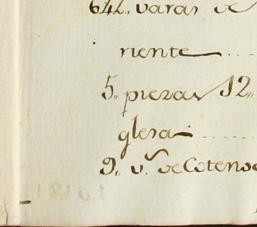 642. varas de
riente
5,, piezas 12,,
glesa
9,, v.s de Cotens